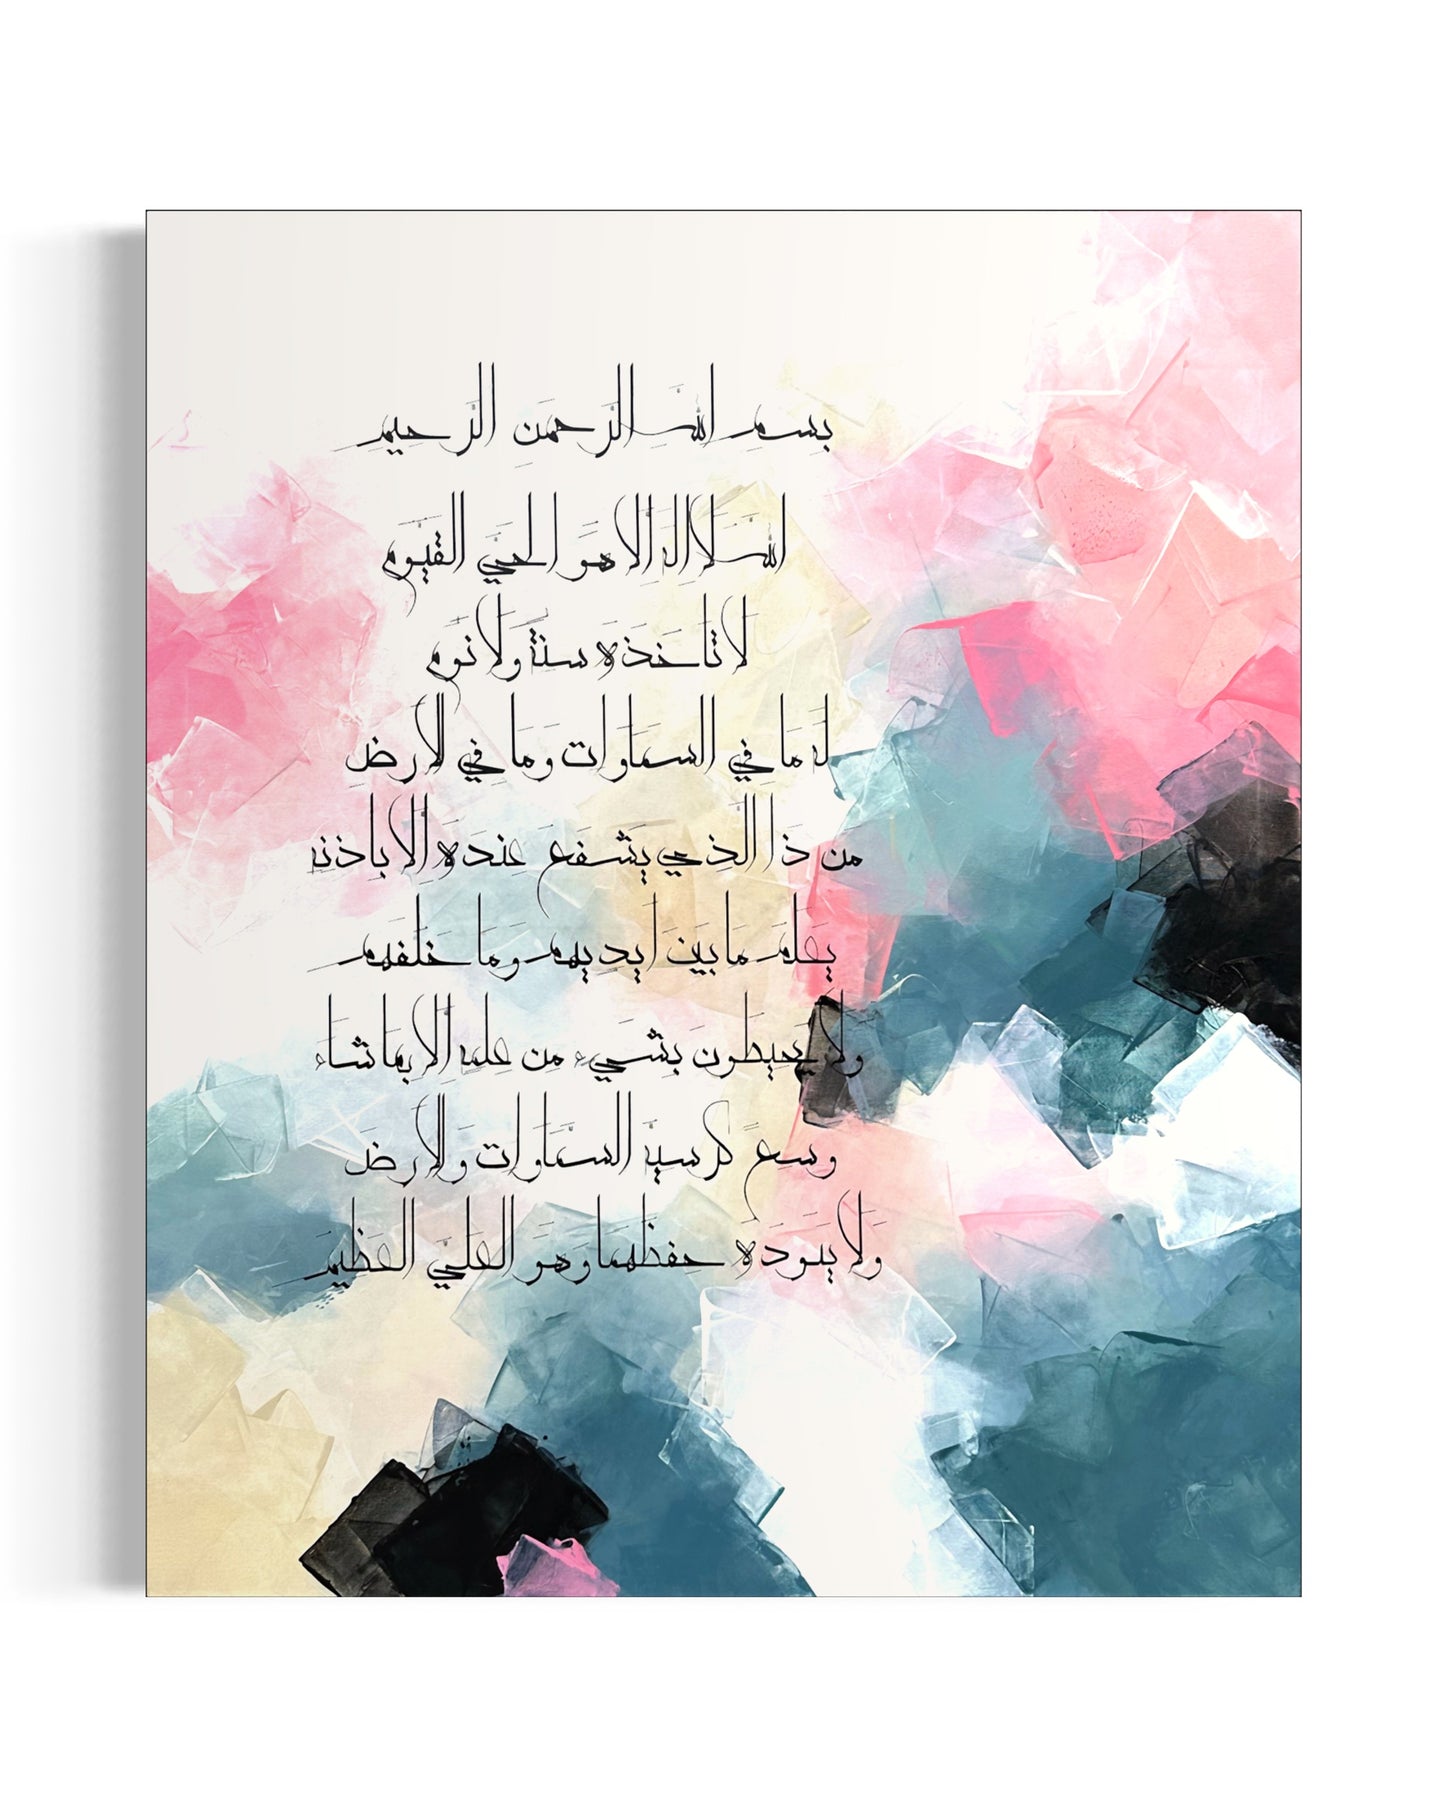 بِسمِ اللهِ الرَّحمَنِ الرَّحِيمِ
اللهُ لا إله إلا هوَ الحيَّ القيّوم
لا تأخذه سنة ولا نوم
له ما في السماوات وما في الأرض
من ذا الذي يشفع عنده إلا بإذنه
يعلم ما بين أيديهم وما خلفهم
ولا يحيطون بشيء من علمه إلا بما شاء
وسع كرسيه السماوات والأرض
ولا يئوده حفظهما وهو العلي العظيم